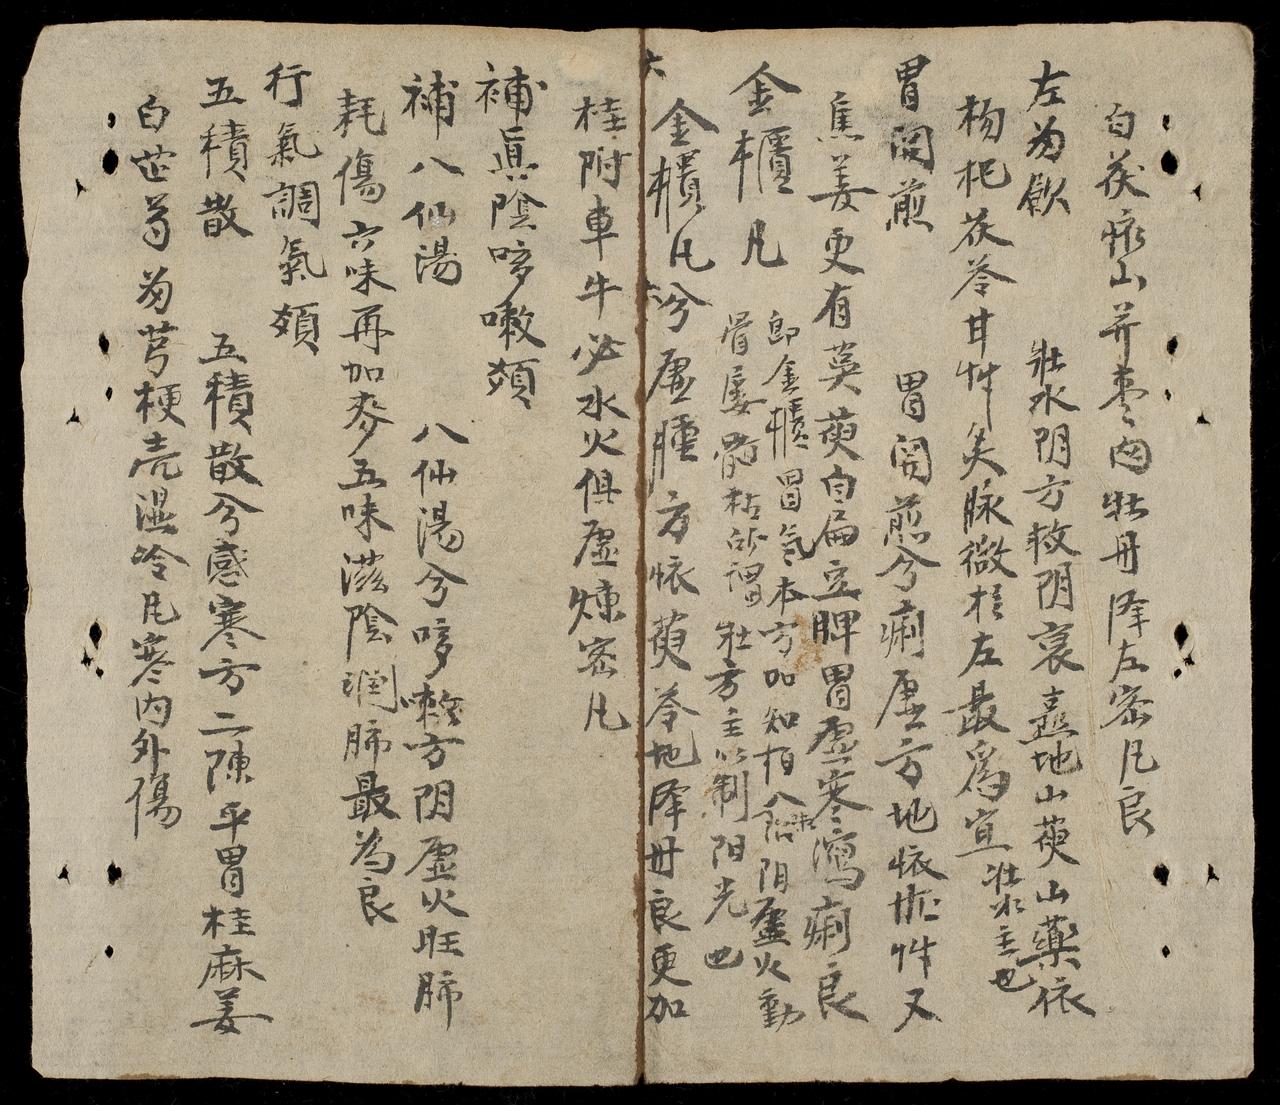 白茯懷山并枣肉牡丹泽左密凡良
左为飲　壯水阴方救阴衰熹地山萸山藥依
枸杞茯苓甘艸炙脉微極左最爲宜壯水主也
胃関煎　胃関煎兮痢虚方地懷艸又
焦姜更有萸萸白扁立脾胃虚寒瀉痢良
金櫃凡　即金櫃腎氣本方加知柏八味治阴虚火動
骨痿髓枯所謂壯方主以制阳光也
金櫃凡兮虚腫方懷萸苓地泽丹良更加
桂附車牛必水火俱虚煉密凡
補眞陰咳嗽類
補八仙湯　八仙湯兮咳嗽方阴虚火旺肺
耗傷六味再加麥五味滋陰潤肺最为良
行氣調氣類
五積散　五積散兮感寒方二陳平胃桂麻姜
白芷芍芎梗壳湿冷凡寒内外傷